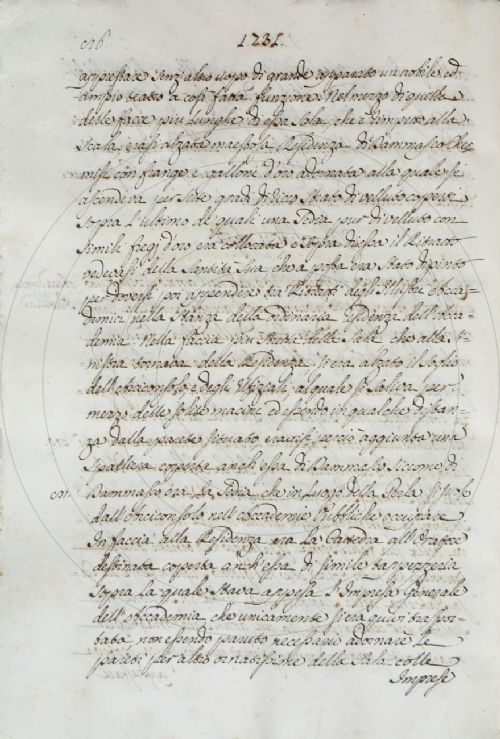 1731.
apprestare senz'altro uopo di grande apparato un nobile ed
ampio teatro a così fatta funzione. Nel mezzo di quella
delle facie più lunghe di essa Sala, che è rimpetto alla
Scala, erasi alzata maestosa Residenza di Dammasco Che
misi con frange e galloni d'oro adornata alla quale se
ascendeva per sette gradi di dico Stato di velluto coperti
Sopra L'ultimo de' quali una Sedia pur di velluto con
simili fregi d'oro era collocata e sopra di essa il Ritratto
vedeasi della Santità Sua che a posta era stato dipinto
per doversi poi appendere tra Ritratti degli Illustri Acca-
demici nella Stanza della ordinaria Residenza dell'Acca-
demia. Nella facia più Stretta della Sala che alla si-
nistra tornava della Residenza si era alzato il Soglio
dell'Arciconsolo e degli Ufiziali, al quale si saliva per
mezzo delle solite macini ed essendo in qualche distan-
za dalla parete situato erasi perciò aggiunta una
Spalliera coperta anch'essa di Dammasco siccome di
Dammasco era La Sedia che in Luogo della Scola si suole
dall'Arciconsolo nell'Accademie Pubbliche occupare
In faccia alla Residenza era La Cattedra all'Oratore
destinata coperta anch'essa di simile tappezzeria
Sopra La quale stava appesa L'Impresa Generale
dell'Accademia che unicamente si era quivi traspor-
tata non essendo paruto necessario adornare Le
pareti per altro ornatissime della Sala colle
Imprese